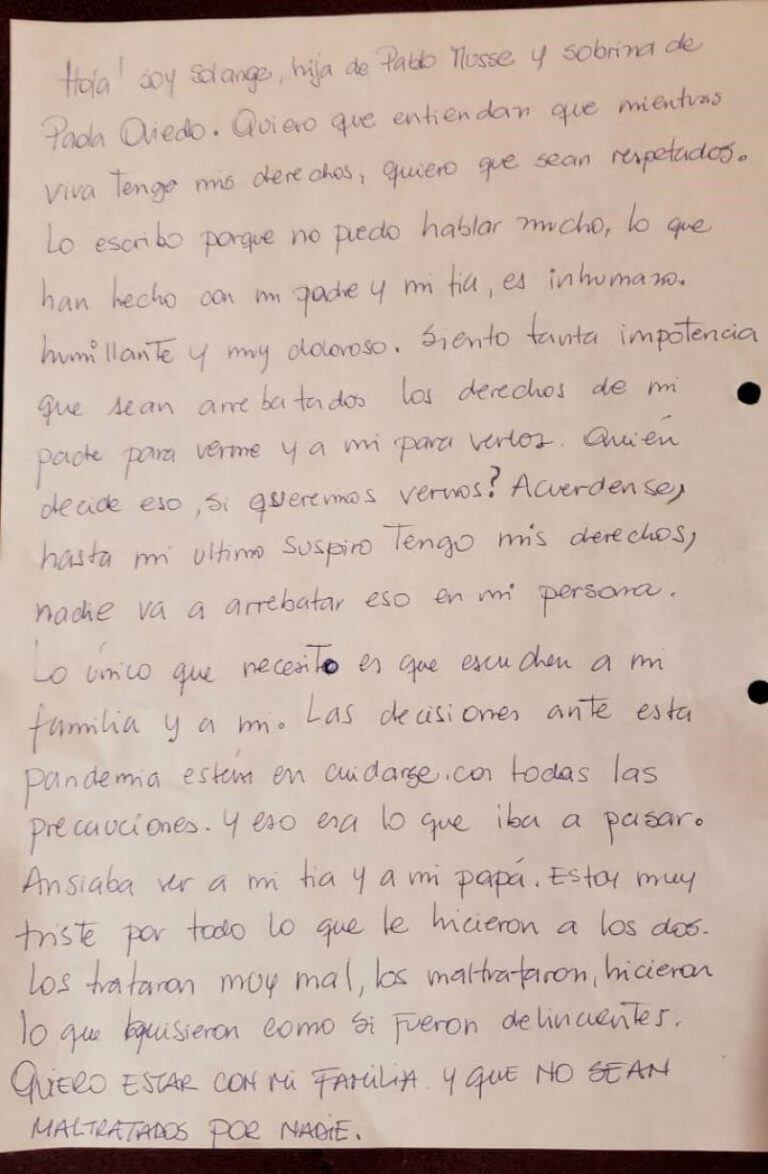 Hola! soy Solange, hija de Pablo Musse y sobrina de
Paola Oviedo. Quiero que entiendan que mientras
viva Tengo mis derechos, quiero que sean respetados.
Lo escribo porque no puedo hablar mucho, lo que
han hecho con mi padre y mi tia, es inhumano.
humillante y muy doloroso. Siento tanta impotencia
que sean arrebatados los derechos de mi
padre para verme y a mi para verlos. Quién
decide eso, si queremos vernos? Acuerdense,
hasta mi ultimo suspiro Tengo mis derechos,
nadie va a arrebatar eso en mi persona.
Lo único que necesito es que escuchen a mi
familia y a mi. Las decisiones ante esta
pandemia están en cuidarse. con todas las
precauciones. y eso era lo que iba a pasar.
Ansiaba ver a mi tia y a mi papá. Estoy muy
triste por todo lo que le hicieron a los dos.
Los trataron muy mal, los maltrataron, hicieron
lo que quisieron como si fueron delincuentes.
QUIERO ESTAR CON Mi FAMILIA. Y QUE NO SEAN
MALTRATADOS POR NADIE.